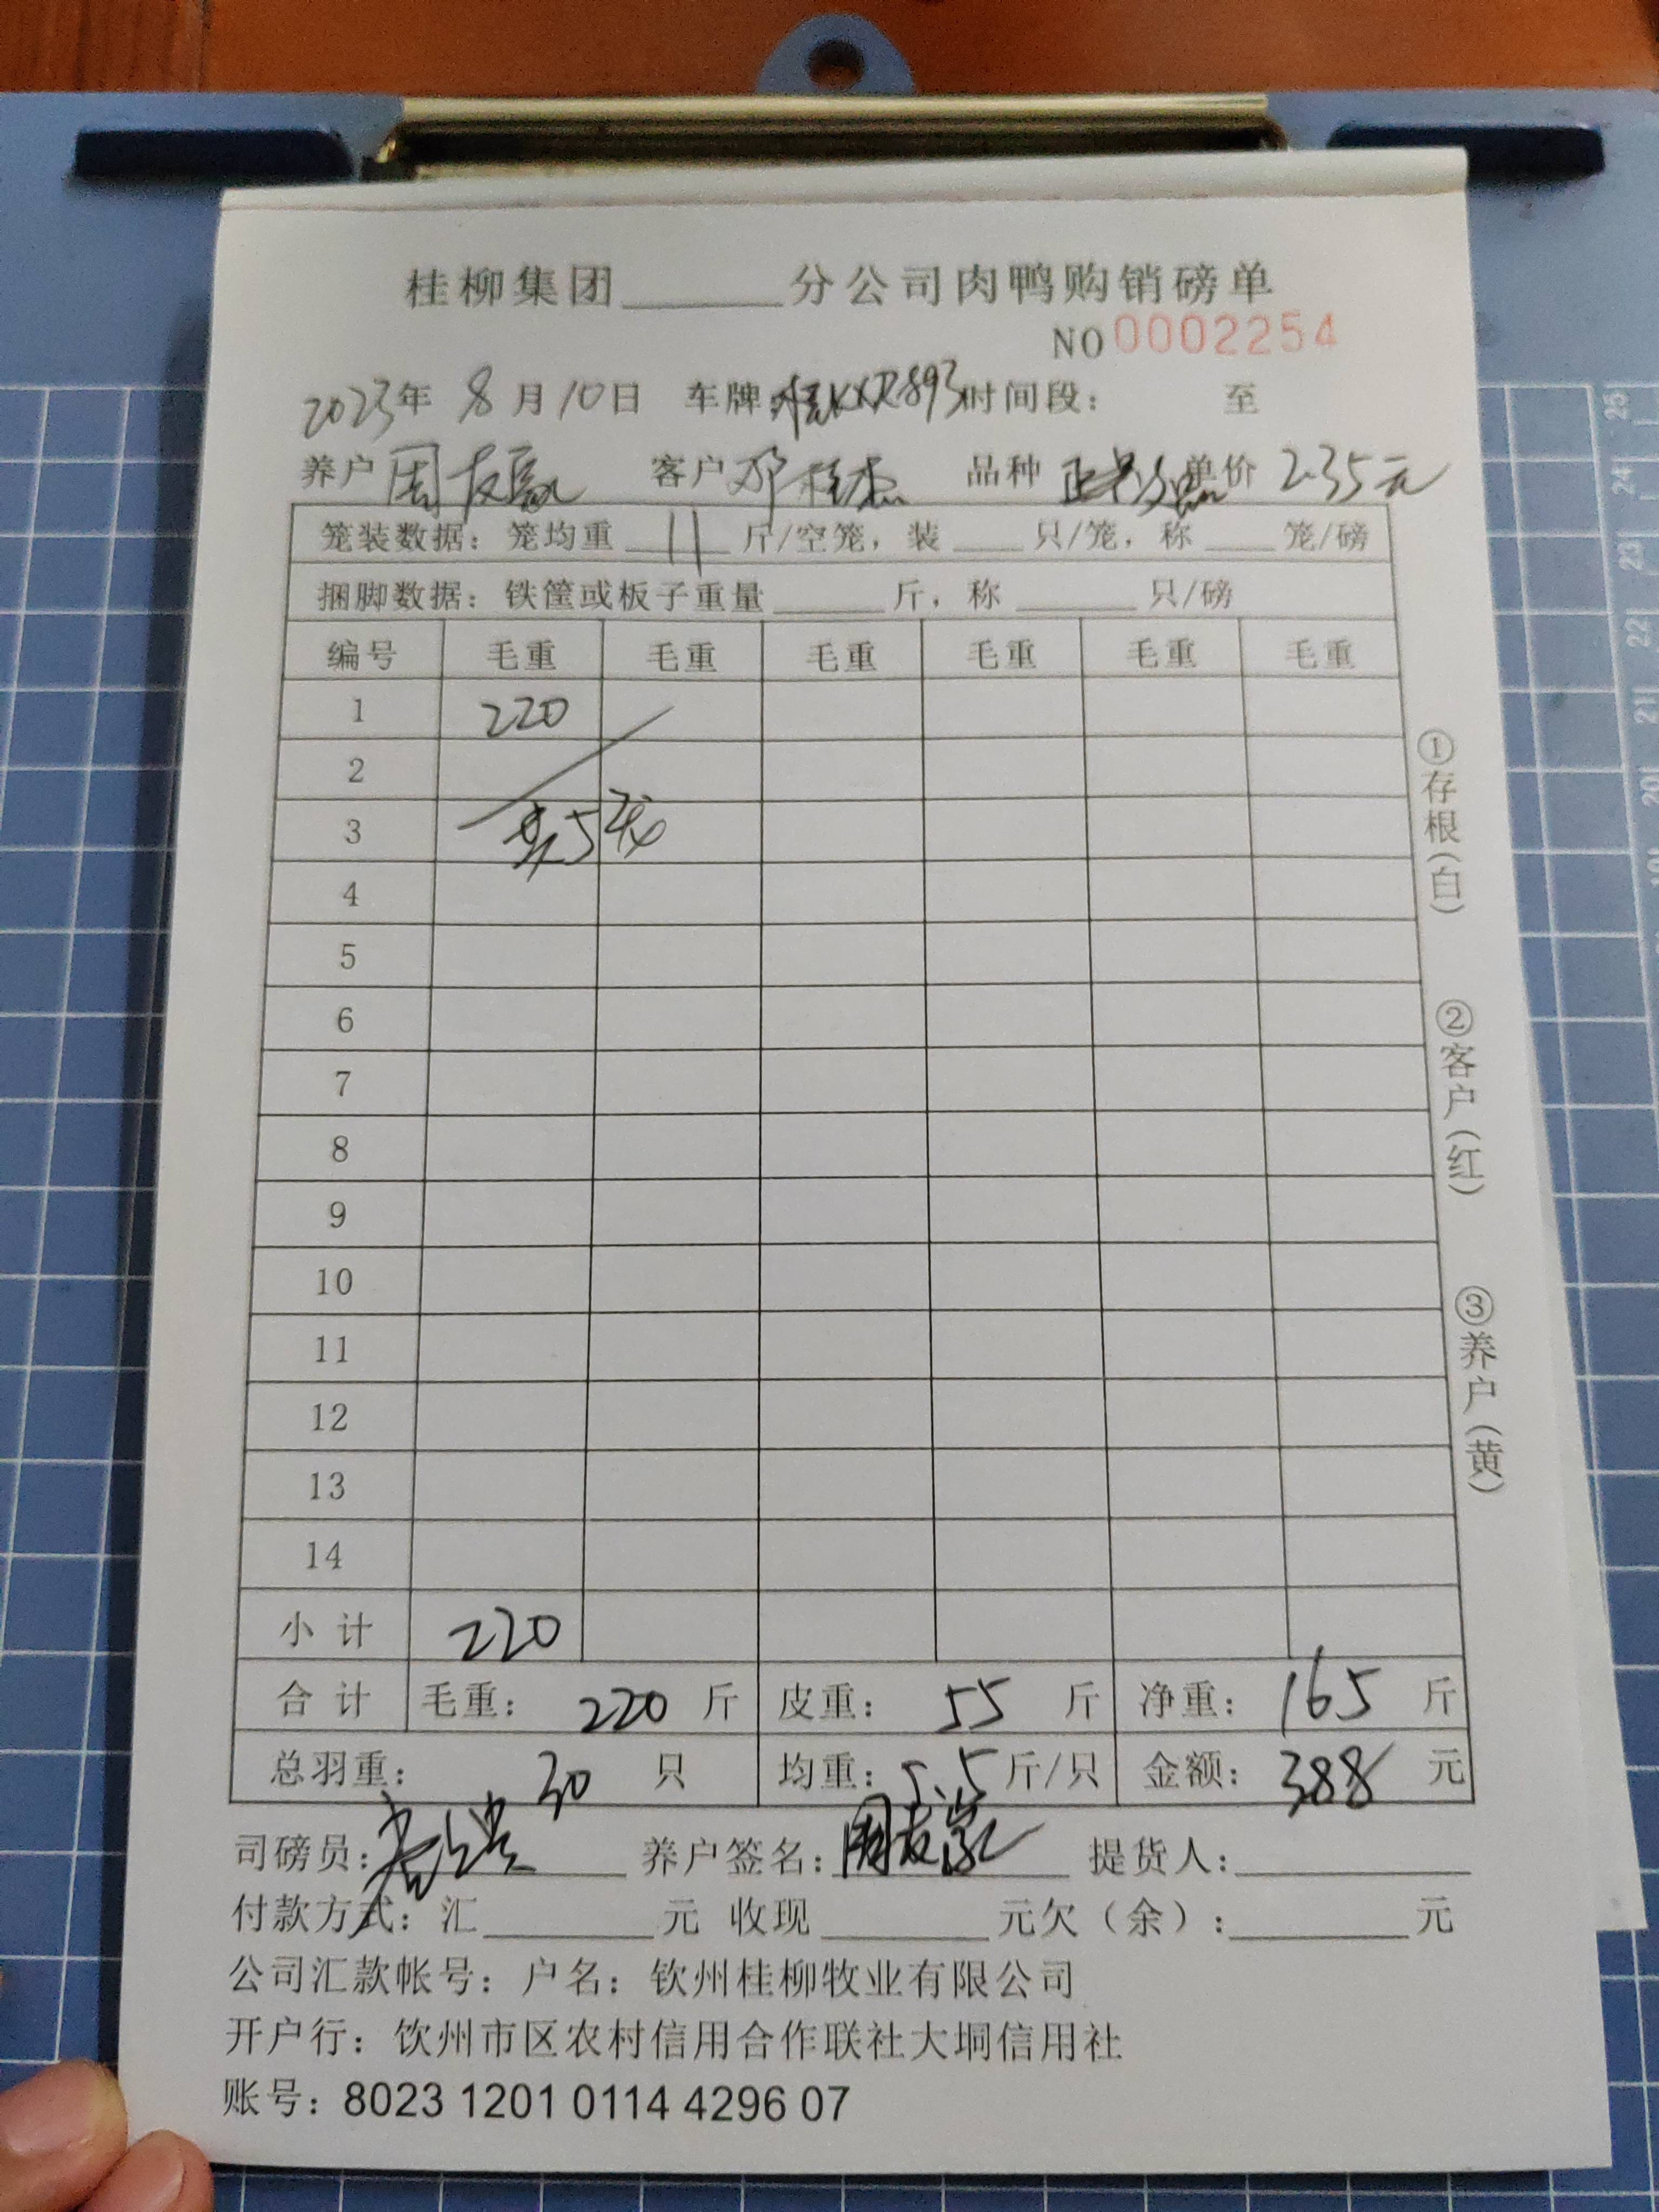 桂柳集团______分公司肉鸭购销磅单
NO 0002254
2023年 8月10日 车牌: 时间段: 至
养户 周友 客户 邓桂杰 品种 单价 2.35元
笼装数据: 笼均重 11 斤/空笼, 装 ___ 只/笼, 称 ___ 笼/磅
捆脚数据: 铁筐或板子重量 ______ 斤, 称 ______ 只/磅
编号 毛重 毛重 毛重 毛重 毛重 毛重
1 220
2
3 共5笼
4
5
6
7
8
9
10
11
12
13
14
小 计 220
合 计 毛重: 220 斤 皮重: 55 斤 净重: 165 斤
总羽重: 30 只 均重: 5.5 斤/只 金额: 388 元
司磅员: 养户签名: 周友 提货人:
付款方式: 汇______元 收现______元欠（余）:______元
公司汇款帐号: 户名: 钦州桂柳牧业有限公司
开户行: 钦州市区农村信用合作联社大垌信用社
账号: 8023 1201 0114 4296 07
①存根(白)
②客户(红)
③养户(黄)
25
24
23
22
21
20
19